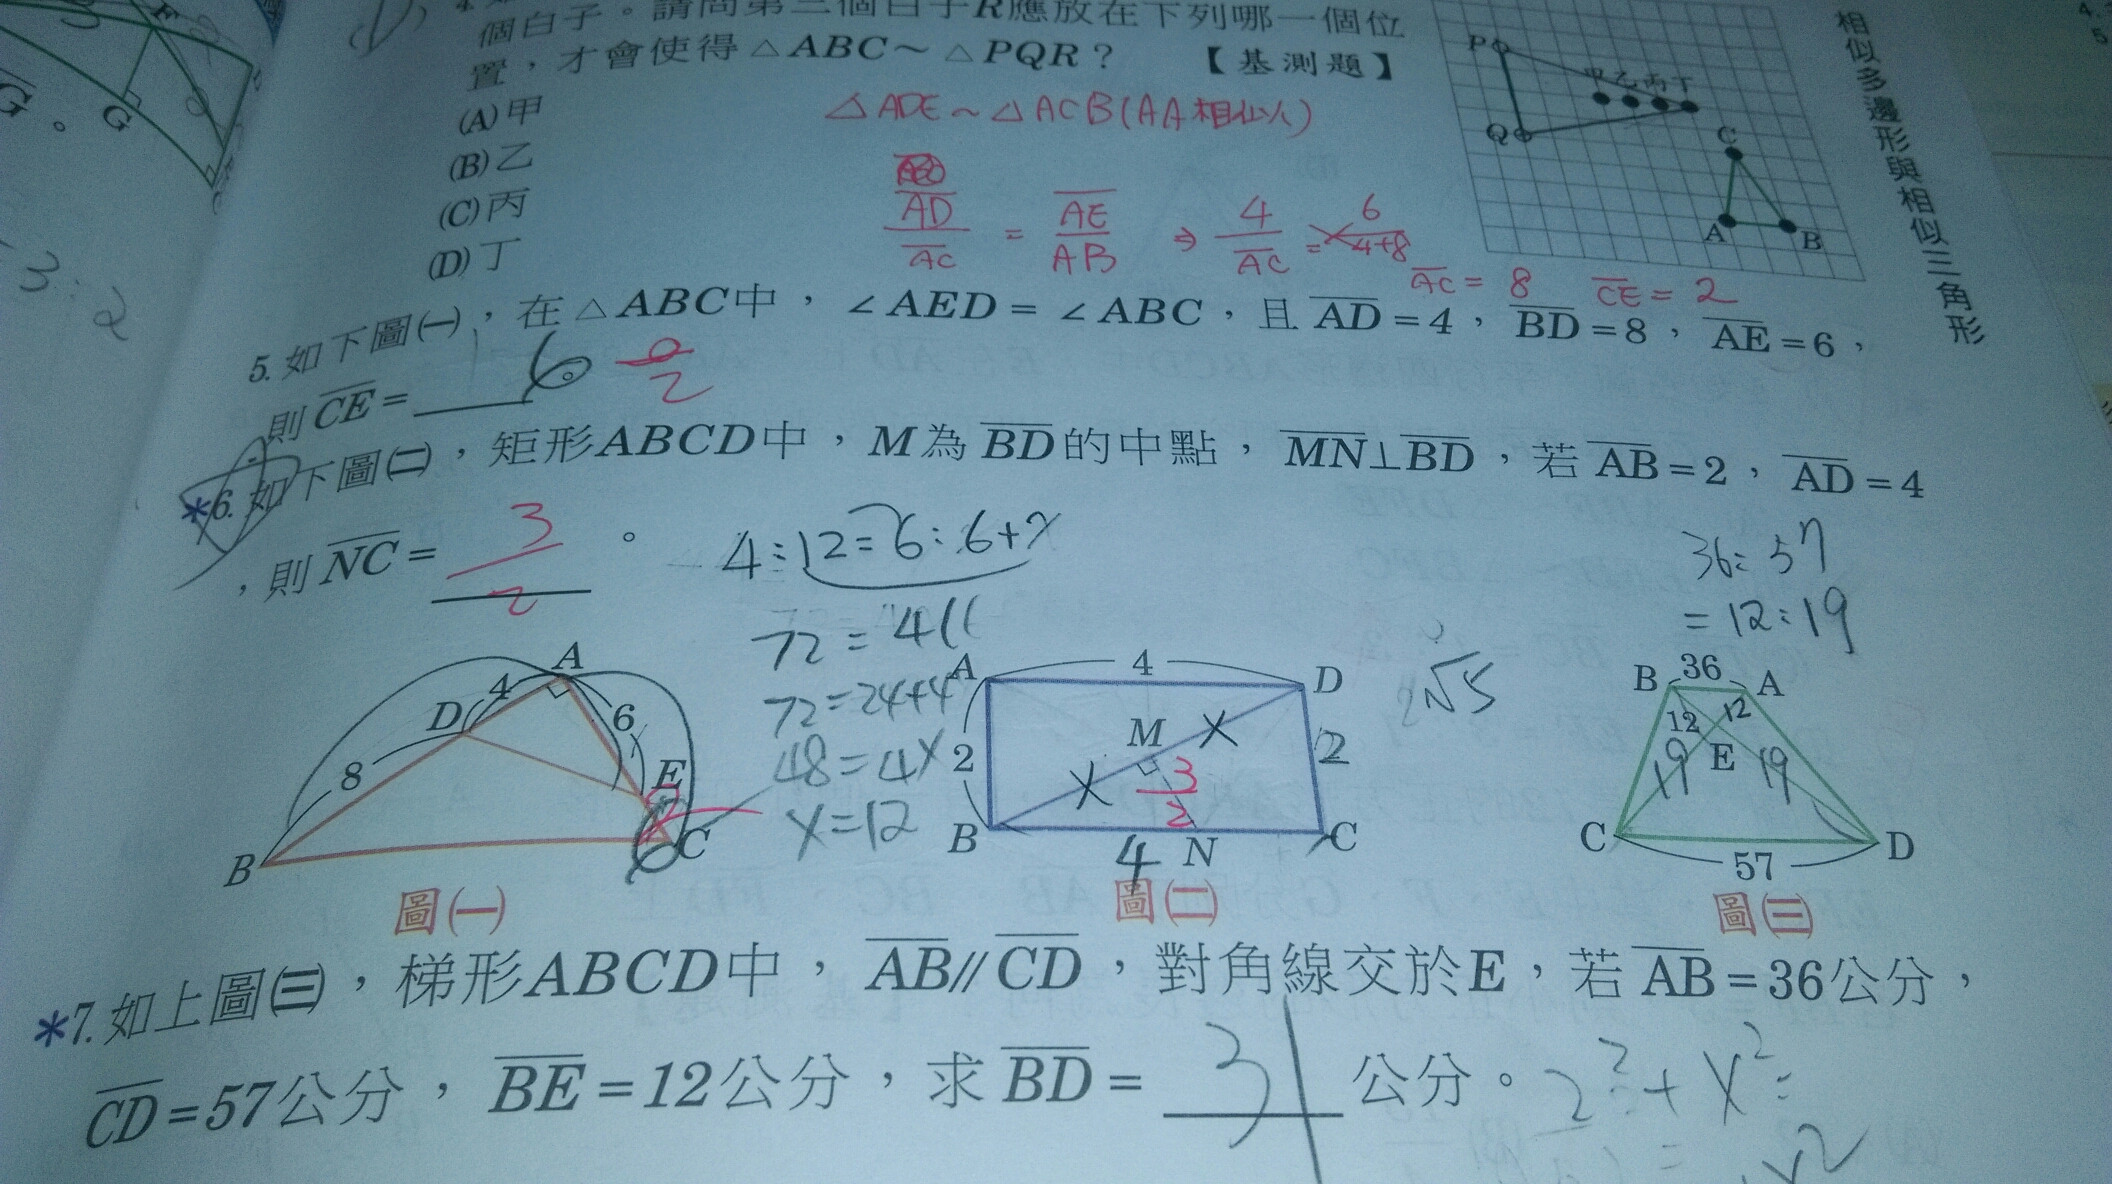 個白子。請問第三個白子R應放在下列哪一個位
置，才會使得△ABC～△PQR？ 【基測題】
(A)甲
(B)乙
(C)丙
(D)丁
P
甲乙丙丁
Q
C
A
B
相似多邊形與相似三角形
G
G。
3:2
△ADE～△ACB(AA相似)
AD/AC = AE/AB ⇒ 4/AC = 6/4+8
AC = 8 CE = 2
5.如下圖㈠，在△ABC中，∠AED=∠ABC，且AD=4，BD=8，AE=6，
則CE=____
6
*6.如下圖㈡，矩形ABCD中，M為BD的中點，MN⊥BD，若AB=2，AD=4
，則NC= 3/2 。
4:12=6:6+x
72=4((
72=24+4
48=4x
x=12
36:57
=12:19
A
4
D
6
8
E
B
C
圖㈠
A
4
D
2
M
x
x
2
3/2
B
4
N
C
圖㈡
2√5
B 36 A
12 12
19 E 19
C
57
D
圖㈢
*7.如上圖㈢，梯形ABCD中，AB//CD，對角線交於E，若AB=36公分，
CD=57公分，BE=12公分，求BD= 31 公分。
2²+x²=